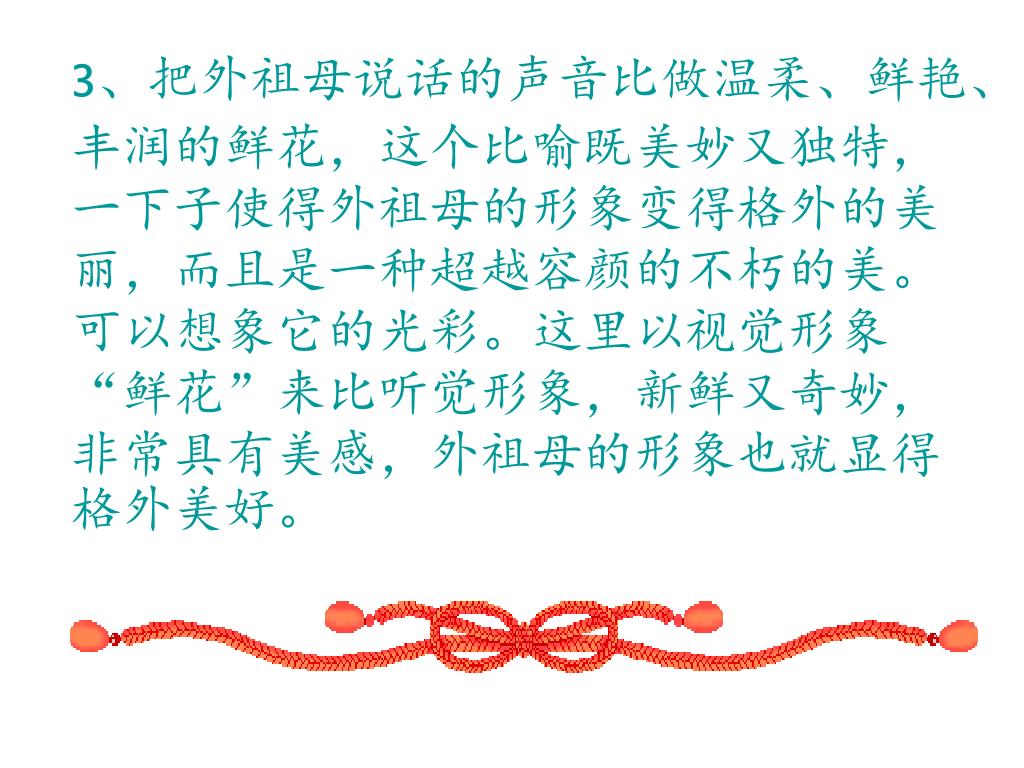 3、把外祖母说话的声音比做温柔、鲜艳、
丰润的鲜花，这个比喻既美妙又独特，
一下子使得外祖母的形象变得格外的美
丽，而且是一种超越容颜的不朽的美。
可以想象它的光彩。这里以视觉形象
“鲜花”来比听觉形象，新鲜又奇妙，
非常具有美感，外祖母的形象也就显得
格外美好。